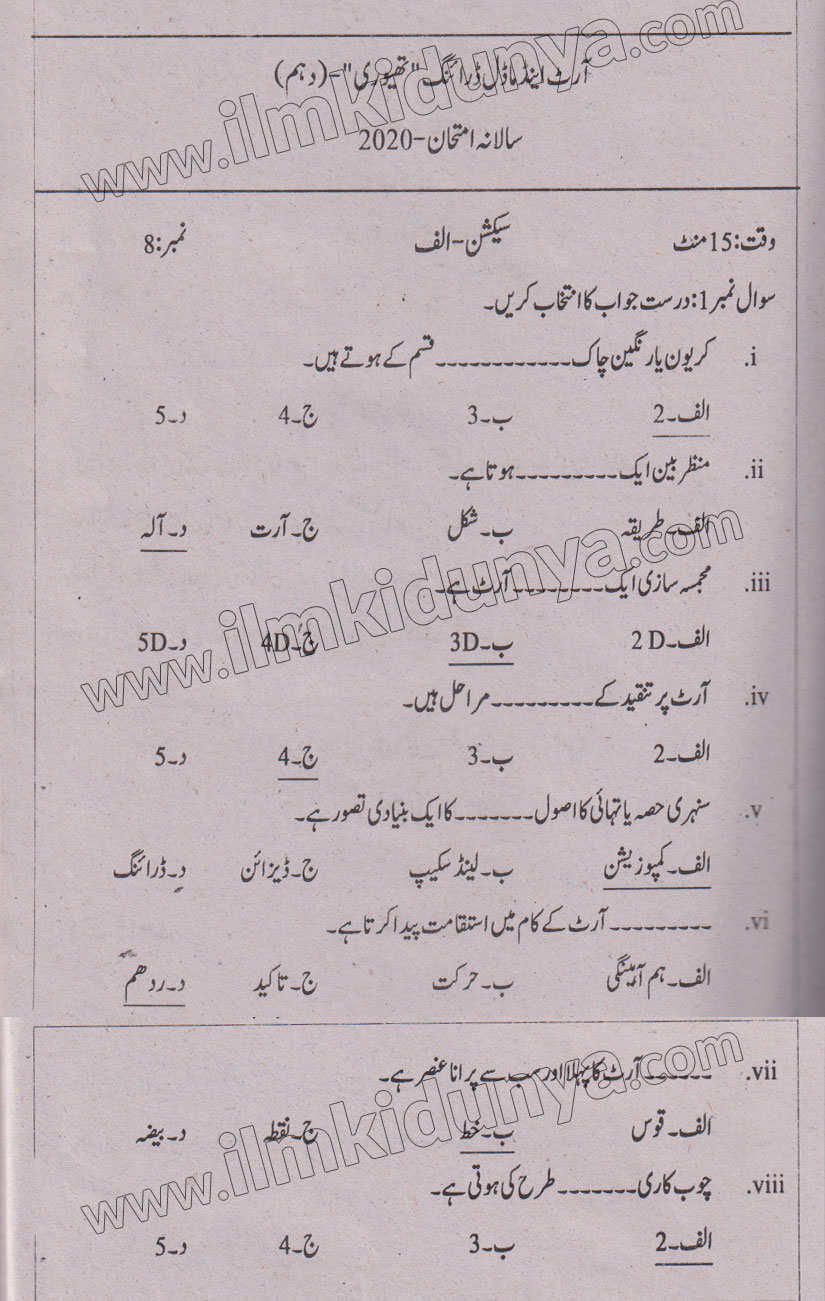 آرٹ اینڈ ماڈل ڈرائنگ "تھیوری"-(دہم)
سالانہ امتحان-2020
وقت:15 منٹ سیکشن-الف نمبر:8
سوال نمبر1: درست جواب کا انتخاب کریں۔
i. کریون یا رنگین چاک------------ قسم کے ہوتے ہیں۔
الف۔2 ب۔3 ج۔4 د۔5
ii. منظر بین ایک --------- ہوتا ہے۔
الف۔ طریقہ ب۔ شکل ج۔ آرت د۔ آلہ
iii. مجسمہ سازی ایک -------- آرٹ ہے۔
الف۔2 D ب۔3D ج۔4D د۔5D
iv. آرٹ پر تنقید کے --------- مراحل ہیں۔
الف۔2 ب۔3 ج۔4 د۔5
v. سنہری حصہ یا تہائی کا اصول ------- کا ایک بنیادی تصور ہے۔
الف۔ کمپوزیشن ب۔ لینڈ سکیپ ج۔ ڈیزائن د۔ ڈرائنگ
vi. --------- آرٹ کے کام میں استقامت پیدا کرتا ہے۔
الف۔ ہم آہینگی ب۔ حرکت ج۔ تاکید د۔ ردھم
vii. ------- آرٹ کا پہلا اور سب سے پرانا عنصر ہے۔
الف۔ قوس ب۔ خط ج۔ نقطہ د۔ بیضہ
viii. چوب کاری ------- طرح کی ہوتی ہے۔
الف۔2 ب۔3 ج۔4 د۔5
www.ilmkidunya.com
www.ilmkidunya.com
www.ilmkidunya.com